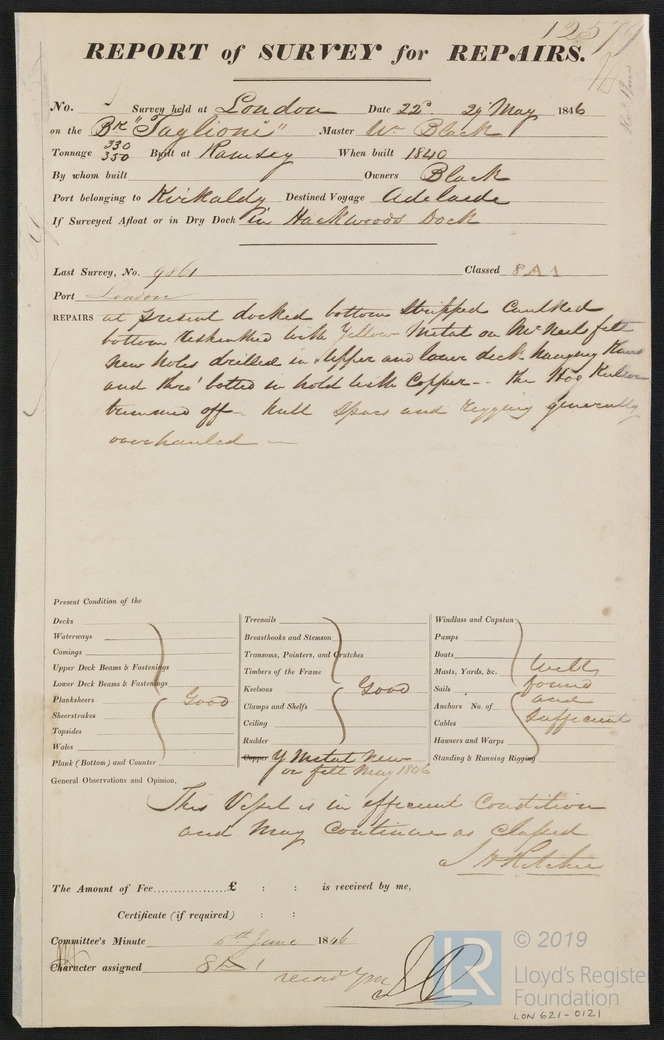 12579
REPORT of SURVEY for REPAIRS.
No. Survey held at London Date 22d 29 May 1846
on the Bk "Taglioni" Master Wm Black
Tonnage 330 350 Built at Ramsey When built 1840
By whom built Owners Black
Port belonging to Kirkaldy Destined Voyage Adelaide
If Surveyed Afloat or in Dry Dock In Hackwoods Dock
Last Survey, No. 9861 Classed 8 A 1
Port London
REPAIRS at present docked bottom Stripped Caulked
bottom with Yellow Metal on McNeils felt
New holes drilled in upper and lower deck hanging
and thro' bolted in hold with Copper - the Hog
trimmed off - hull Spars and rigging generally
overhauled -
Present Condition of the
Decks
Waterways
Comings
Upper Deck Beams & Fastenings
Lower Deck Beams & Fastenings
Planksheers Good
Sheerstrakes
Topsides
Wales
Plank (Bottom) and Counter
Treenails
Breasthooks and Stemson
Transoms, Pointers, and Crutches
Timbers of the Frame
Keelsons Good
Clamps and Shelfs
Ceiling
Rudder
Copper Y Metal New
on felt May 1846
Windlass and Capstan
Pumps
Boats
Masts, Yards, &c. Well
Sails found
Anchors No. of and
Cables Sufficient
Hawsers and Warps
Standing & Running Rigging
General Observations and Opinion,
This Vessel is in efficient Condition
and may Continue as Classed
The Amount of Fee..................£ : : is received by me,
Certificate (if required) : :
Committee's Minute June 1846
Character assigned 8 A 1
LR
© 2019
Lloyd's Register
Foundation
LON 621-0121